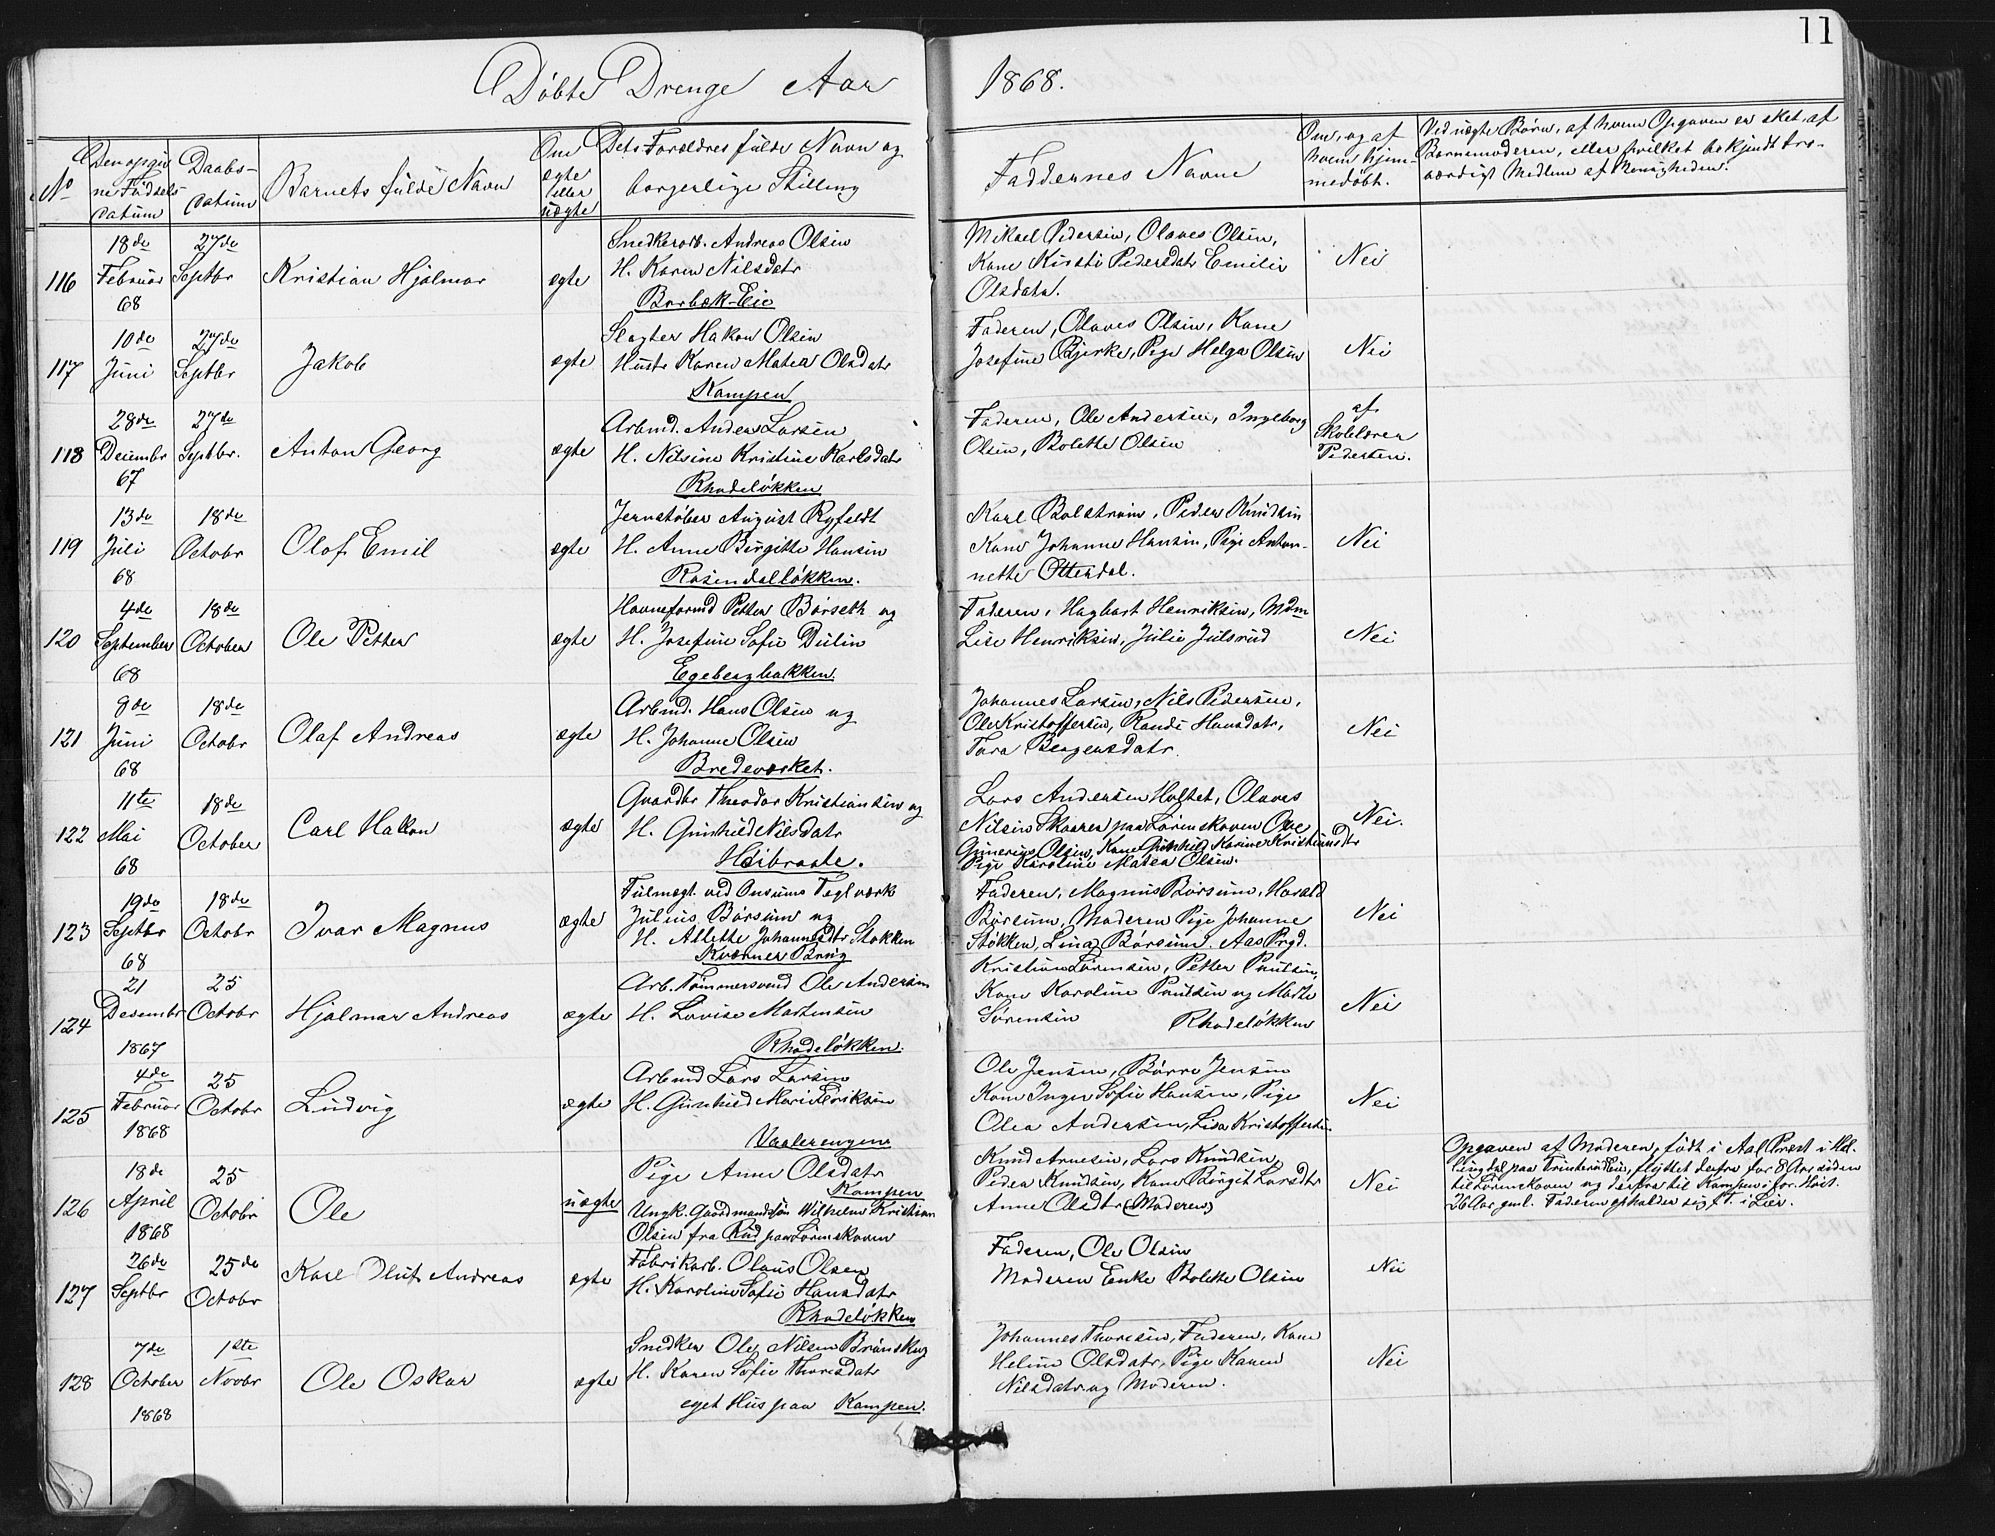 11
Døbte Drenge Aar 1868.
No
Den opgivne Fødsels Datum
Daabs-Datum
Barnets fulde Navn
Om ægte eller uægte
Dets Forældres fulde Navn og borgerlige Stilling
Faddernes Navne
Om, og af hvem hjemmedøbt.
Ved uægte Børn, af hvem Opgaven er sket, af
Barnemoderen, eller hvilket bekjendt tro-
værdigt Medlem af Menigheden.
116
18de Februar 68
27de Septbr
Kristian Hjalmar
ægte
Snedkerarb. Andreas Olsen
H. Karen Nilsdatr
Barbæk-Eie
Mikael Pedersen, Olaves Olsen,
Kone Kirsti Pedersdatr Emilie
Olsdatr.
Nei
117
10de Juni
27de Septbr
Jakob
ægte
Slagter Hakon Olsen
Hustr Karen Matea Olsdatr
Kampen
Faderen, Olaves Olsen, Kone
Josefine Bjerke, Pige Helga Olsen
Nei
118
28de Decembr 67
27de Septbr.
Anton Georg
ægte
Arbmd. Anders Larsen
H. Nilsine Kristine Karlsdatr
Rhodeløkken
Faderen, Ole Andersen, Ingeborg
Olsen, Bolette Olsen
af Skolelærer Pedersen.
119
13de Juli 68
18de Octobr
Olof Emil
ægte
Jernstøber August Ryfeldt
H. Anne Birgitte Hansen
Rosendalløkken.
Karl Bolstrøm, Peder Knudsen
Kone Johanne Hansen, Pige Anton-
nette Otterdal.
Nei
120
4de September 68
18de October
Ole Petter
ægte
Havneformd Petter Børseth og
H. Josefine Sofie Dulin
Egebergbakken
Faderen, Hagbart Henriksen, Mdm
Lise Henriksen, Julie Julsrud
Nei
121
9de Juni 68
18de Octobr
Olaf Andreas
ægte
Arbmd. Hans Olsen og
H. Johanne Olsen
Bredeværket.
Johannes Larsen, Nils Pedersen,
Ole Kristoffersen, Randi Hansdatr,
Tara Bergersdatr.
Nei
122
11te Mai 68
18de October
Carl Hakon
ægte
Gaardbr Theodor Kristiansen og
H. Gunhild Nilsdatr
Høibraate.
Lars Andersen Holtet, Olaves
Nilsen Skaarer paa Lørenskoven Ole
Gunerius Olsen, Kone Gunhild Karine Kristiansdtr
Pige Karoline Matea Olsen.
Nei.
123
19de Septbr 68
18de Octobr
Ivar Magnus
ægte
Fulmægt. ved Onsums Teglværk
Julius Børsum og
H. Allette Johannesdtr Stokken
Kværner Brug
Faderen, Magnus Børsum, Harald
Børsum, Moderen Pige Johanne
Støkken, Lina Børsum. Aas Prgd.
Nei
124
21 Desembr 1867
25 Octobr
Hjalmar Andreas
ægte
Arb. Tømmersvend Ole Andersen
H. Lovise Martensen
Rhodeløkken.
Kristian Sørensen, Petter Poulsen,
Kone Karoline Poulsen og Marte
Sørensen Rhodeløkken
Nei
125
4de Februar 1868
25 Octobr
Ludvig
ægte
Arbmd Lars Larsen
H. Gunhild Marie Eriksen
Vaalerengen
Ole Jensen, Børre Jensen
Kone Inger Sofie Hansen, Pige
Olea Andersen, Lisa Kristoffersen
Nei
126
18de April 1868
25 Octobr
Ole
uægte
Pige Anne Olsdatr
Kampen
Ungk. Gaardmandssøn Wilhelm Kristian
Olsen fra Rud paa Lørenskoven
Knud Arnesen, Lars Knudsen,
Peder Knudsen, Kone Børgit Larsdtr
Anne Olsdtr (Moderen)
Nei
Opgaven af Moderen, født i Aal Præst i Hal-
lingdal paa Trinterud Eie, flyttet derfra for 8 Aar siden
til Lørenskoven og derfra til Kampen i for. Høst.
26 Aar gml. Faderen opholder sig f.T. i Lier.
127
26de Septbr
25de Octobr
Karl Oluf Andreas
ægte
Fabrikarb. Olaus Olsen
H. Karoline Sofie Hansdatr
Rhodeløkken
Faderen, Ole Olsen
Moderen Enke Bolette Olsen
Nei
128
7de October 1868
1ste Novbr
Ole Oskar
ægte
Snedker Ole Nilsen Brønsky
H. Karen Sofie Thoresdatr
eget Hus paa Kampen.
Johannes Thoresen, Faderen, Kone
Heline Olsdatr, Pige Karen
Nilsdatr og Moderen.
Nei